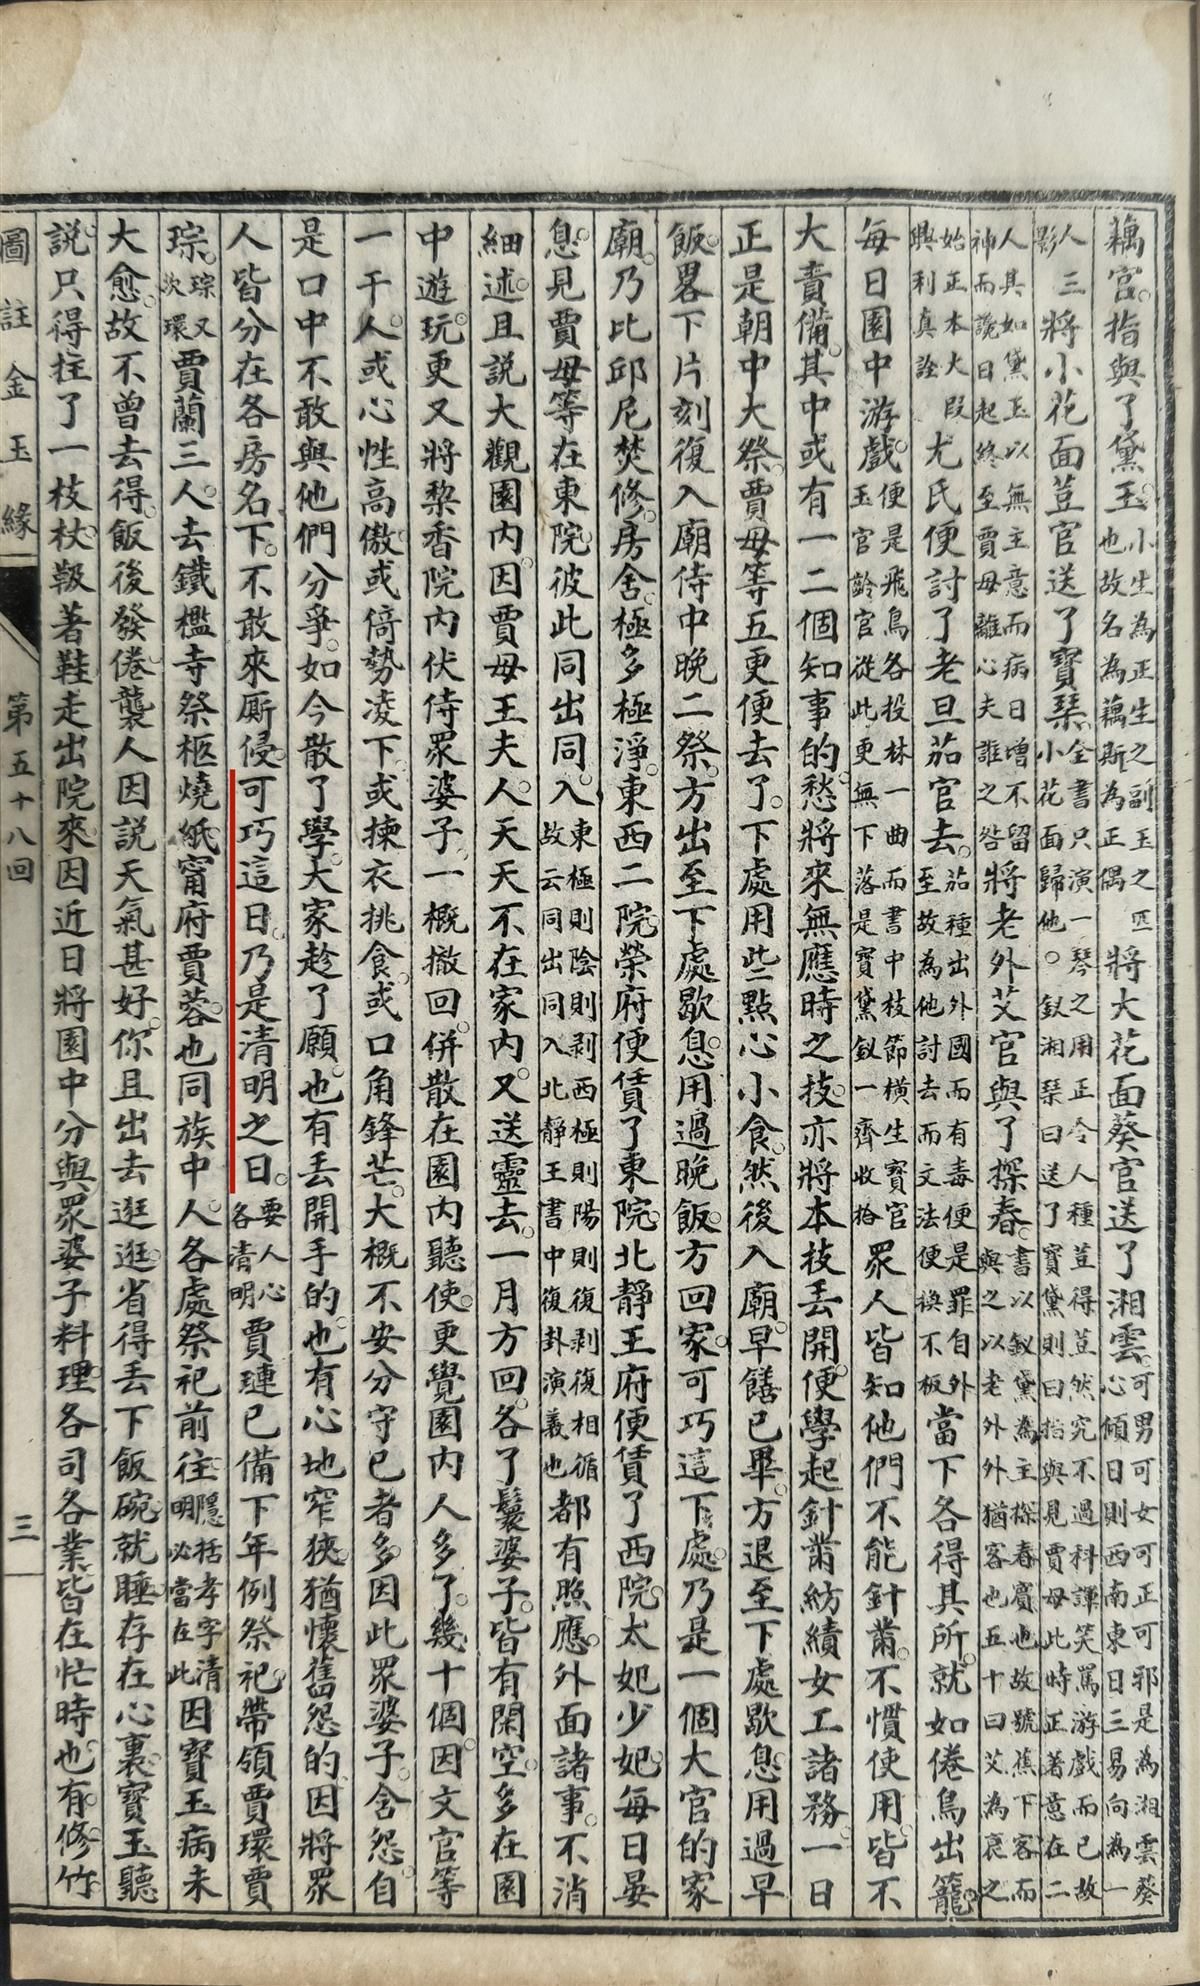 藕官指與了黛玉小生為正生之副玉之匹也故名為藕斯為正偶將大花面葵官送了湘雲可男可女可正可邪是為湘雲葵心傾日則西南東日三易向為一
影人三將小花面荳官送了寶琴全書只演一琴之用正令人種荳得荳然究不過科諢笑罵游戲而已故小花面歸他釵湘琴曰送了寶黛則曰指與見賈母此時正著意在二
人其如黛玉以無主意而病日增不留神而讒日起終至賈母離心夫誰之咎將老外艾官與了探春書以釵黛為主探春賓也故號蕉下客而與之以老外外猶客也五十曰艾為哀之
始正本大段興利真詮尤氏便討了老旦茄官去茄種出外國而有毒便是罪自外至故為他討去而文法便換不板當下各得其所就如倦鳥出籠
每日園中游戲便是飛鳥各投林一曲而書中枝節橫生寶官玉官齡官從此更無下落是寶黛釵一齊收拾眾人皆知他們不能針黹不慣使用皆不
大責備其中或有一二個知事的愁將來無應時之技亦將本技丟開便學起針黹紡績女工諸務一日
正是朝中大祭賈母等五更便去了下處用些點心小食然後入廟早饍已畢方退至下處歇息用過早
飯畧下片刻復入廟侍中晚二祭方出至下處歇息用過晚飯方回家可巧這下處乃是一個大官的家
廟乃比邱尼焚修房舍極多極淨東西二院榮府便賃了東院北靜王府便賃了西院太妃少妃每日晏
息見賈母等在東院彼此同出同入東極則陰則剥西極則陽則復剥復相循故云同出同入北靜王書中復卦演義也都有照應外面諸事不消
細述且說大觀園內因賈母王夫人天天不在家內又送靈去一月方回各了鬟婆子皆有閑空多在園
中遊玩更又將梨香院內伏侍眾婆子一概撤回併散在園內聽使更覺園內人多了幾十個因文官等
一干人或心性高傲或倚勢凌下或揀衣挑食或口角鋒芒大概不安分守己者多因此眾婆子含怨自
是口中不敢與他們分爭如今散了學大家趁了願也有丟開手的也有心地窄狹猶懷舊怨的因將眾
人皆分在各房名下不敢來厮侵可巧這日乃是清明之日要人心各清明賈璉已備下年例祭祀帶領賈環賈
琮琮又次環賈蘭三人去鐵檻寺祭柩燒紙甯府賈蓉也同族中人各處祭祀前往隱括孝字清明必當在此因寶玉病未
大愈故不曾去得飯後發倦襲人因說天氣甚好你且出去逛逛省得丟下飯碗就睡存在心裏寶玉聽
說只得拄了一枝杖靸著鞋走出院來因近日將園中分與眾婆子料理各司各業皆在忙時也有修竹
圖註金玉緣 第五十八回 三